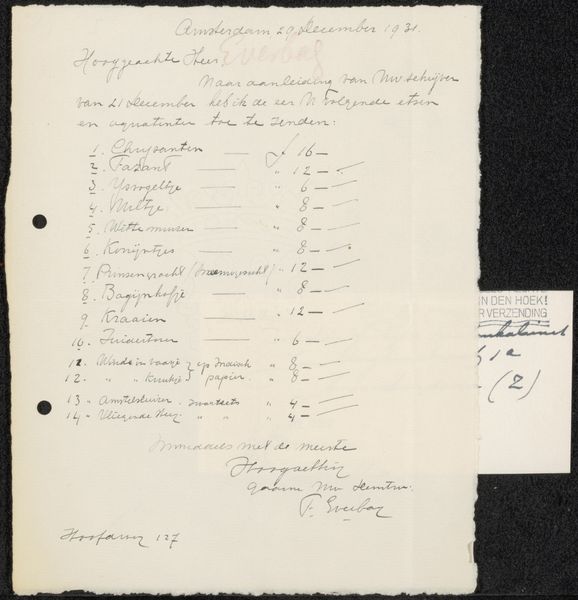 Amsterdam 29 December 1931.
Hooggeachte Heer, Everbag
Naar aanleiding van Uw schrijven
van 21 December heb ik de eer U volgende etsen
en aquatinten toe te zenden:
1. Chrysanten — ƒ 16 —
2. Fazant — " 12 — —
3. IJsvogeltje — " 6 — —
4. — " 8 — —
5. Witte muizen — " 8 — —
6. Konijntjes — " 8 — —
7. Prinsengracht ( " 12 — —
8. Bagijnhofje — " 8 — —
9. Kraaien — " 12 — —
10. Zuidertoren — " 6 — —
11. in vaasje } op Indisch " 8 — —
12. " " Kruikje } papier " 8 — —
13 " Amstelsluizen zwartets " 4 — —
14 " Vliegende " " " 4 — —
Inmiddels met de meeste
Hoogachting
gaarne Uw
F. Everbag
Hoofdweg 127
N DEN HOEK!
R VERZENDING
(2)